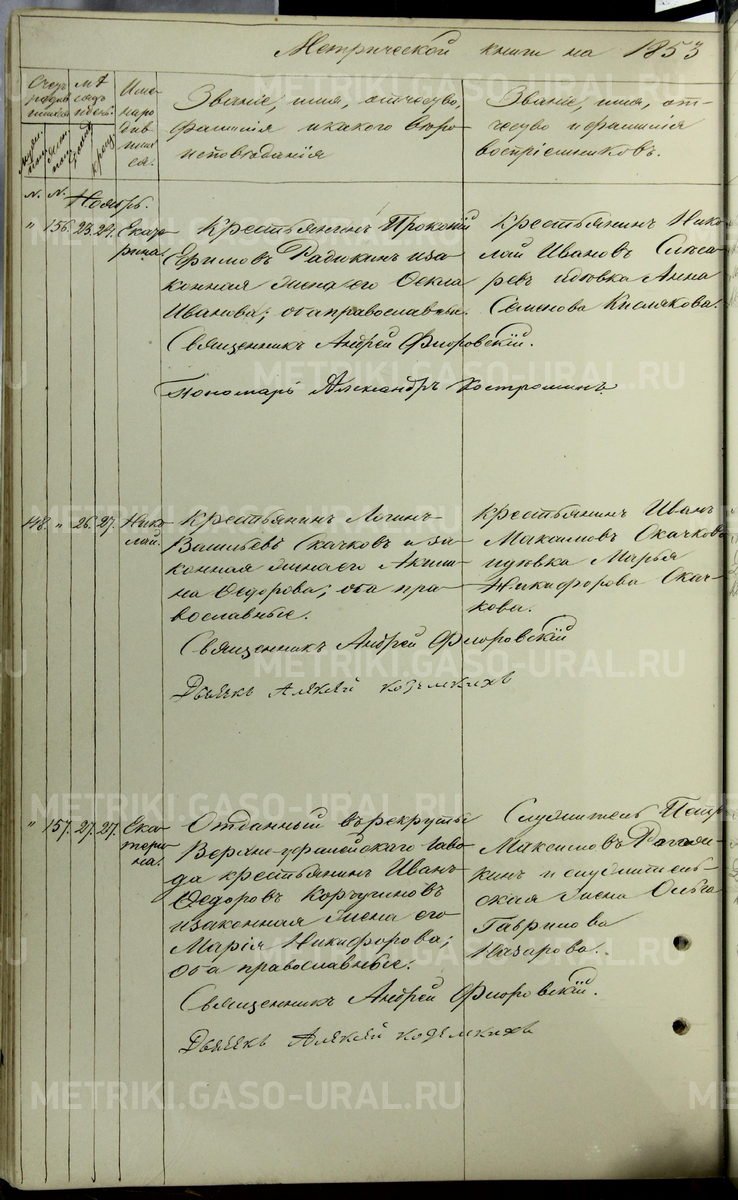 Метрической книги на 1853
Счетъ родившихся
Мѣсяцъ и день
Имена родившихся.
Званіе, имя, отчество,
фамилія и какого вѣро-
исповѣданія
Званіе, имя, от-
чество и фамилія
воспріемниковъ.
Мужска
Женска
рожд.
крещ.
N. N. Ноябрь.
" 156. 23. 24. Екате-
рина.
Крестьянинъ Прокопій
Ефимовъ Радюкинъ и за-
конная жена его Фекла
Иванова; оба православные.
Священникъ Андрей Флоровскій.
Пономарь Александръ Костроминъ.
Крестьянинъ Нико-
лай Ивановъ Слѣса-
ревъ и дѣвка Анна
Семенова Кислякова.
148. " 26. 27. Нико-
лай.
Крестьянинъ Логинъ
Васильевъ Скачковъ и за-
конная жена его Акили-
на Ѳедорова; оба пра-
вославные.
Священникъ Андрей Флоровскій
Дьячекъ Алексѣй Козельскихъ
Крестьянинъ Иванъ
Максимовъ Скачковъ
и дѣвка Марья
Никифорова Скач-
кова.
" 157. 27. 27. Ека-
тери-
на.
Отданный въ рекруты
Верхне-Уфалейскаго заво-
да крестьянинъ Иванъ
Ѳедоровъ Корчугановъ
и законная жена его
Марія Никифорова;
оба православные.
Священникъ Андрей Флоровскій.
Дьячекъ Алексѣй Козельскихъ
Служитель Петръ
Максимовъ
и служитель-
ская жена Ольга
Гаврилова
Назарова.
METRIKI.GASO-URAL.RU